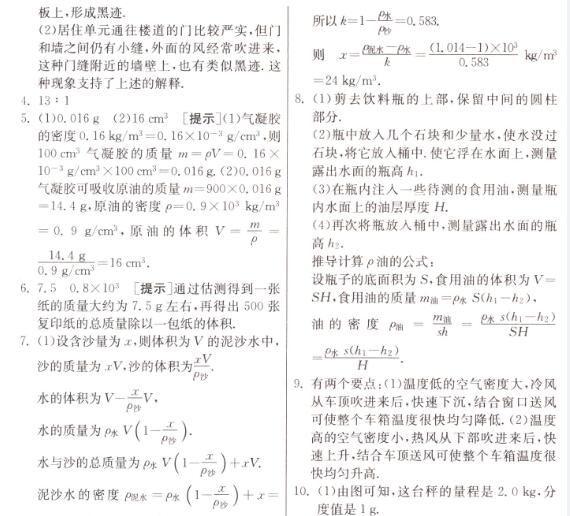 板上,形成黑迹.
(2)居住单元通往楼道的门比较严实,但门
和墙之间仍有小缝,外面的风经常吹进来,
这种门缝附近的墙壁上,也有类似黑迹.这
种现象支持了上述的解释.
4. 13∶1
5. (1)0.016 g (2)16 cm³ [提示](1)气凝胶
的密度0.16 kg/m³=0.16×10⁻³ g/cm³,则
100 cm³ 气凝胶的质量 m=ρV=0.16×
10⁻³ g/cm³×100 cm³=0.016 g. (2)0.016 g
气凝胶可吸收原油的质量 m=900×0.016 g
=14.4 g,原油的密度 ρ=0.9×10³ kg/m³
=0.9 g/cm³,原油的体积 V=m/ρ=
14.4 g/0.9 g/cm³=16 cm³.
6. 7.5 0.8×10³ [提示]通过估测得到一张
纸的质量大约为 7.5 g左右,再得出 500 张
复印纸的总质量除以一包纸的体积.
7. (1)设含沙量为 x,则体积为 V 的泥沙水中,
沙的质量为 xV,沙的体积为xV/ρ沙
水的体积为 V−x/ρ沙 V,
水的质量为 ρ水 V(1−x/ρ沙).
水与沙的总质量为 ρ水 V(1−x/ρ沙)+xV.
泥沙水的密度 ρ泥水=ρ水(1−x/ρ沙)+x=
所以 k=1−ρ水/ρ沙=0.583.
则 x=(ρ泥水−ρ水)/k=(1.014−1)×10³/0.583 kg/m³
=24 kg/m³.
8. (1)剪去饮料瓶的上部,保留中间的圆柱
部分.
(2)瓶中放入几个石块和少量水,使水没过
石块,将它放入桶中.使它浮在水面上,测量
露出水面的瓶高 h₁.
(3)在瓶内注入一些待测的食用油,测量瓶
内水面上的油层厚度 H.
(4)再次将瓶放入桶中,测量露出水面的瓶
高 h₂.
推导计算 ρ油的公式:
设瓶子的底面积为 S,食用油的体积为 V=
SH,食用油的质量 m油=ρ水 S(h₁−h₂),
油的密度 ρ油=m油/sh=ρ水 s(h₁−h₂)/SH
=ρ水 s(h₁−h₂)/H.
9. 有两个要点:(1)温度低的空气密度大,冷风
从车顶吹进来后,快速下沉,结合窗口送风
可使整个车箱温度很快均匀降低.(2)温度
高的空气密度小,热风从下部吹进来后,快
速上升,结合车顶送风可使整个车箱温度很
快均匀升高.
10. (1)由图可知,这台秤的量程是 2.0 kg,分
度值是 1 g.